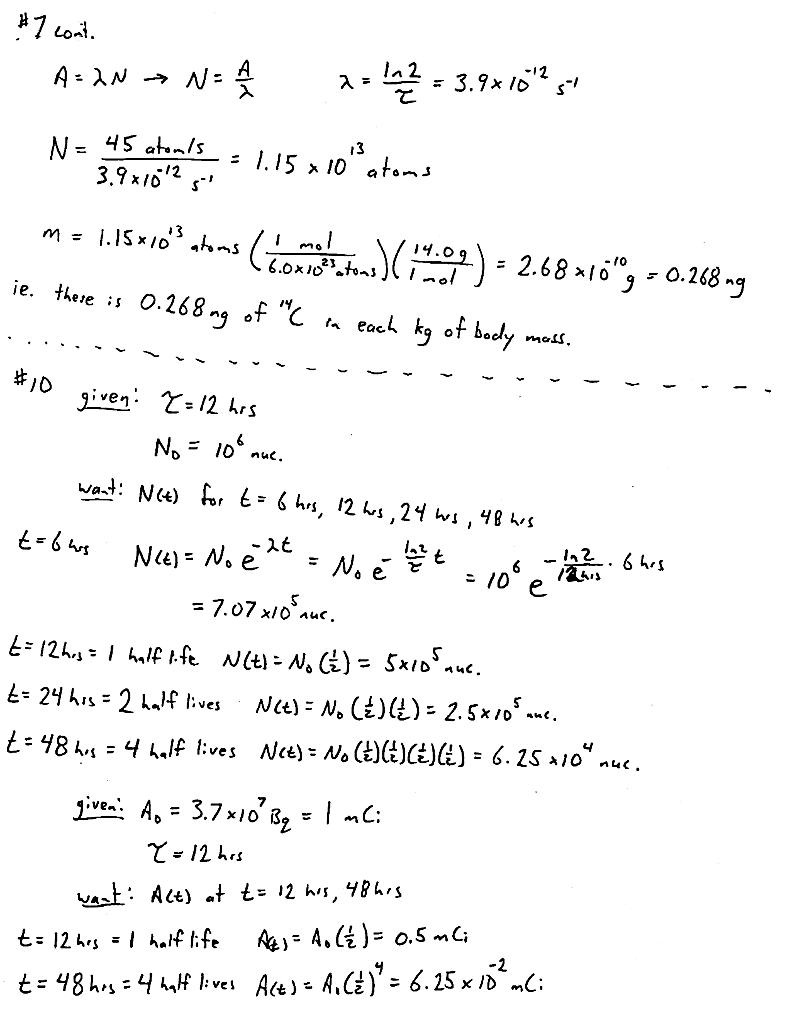 #7 cont.
A = λN → N = A/λ    λ = ln2/τ = 3.9 × 10⁻¹² s⁻¹
N = 45 atom/s / 3.9×10⁻¹² s⁻¹ = 1.15 × 10¹³ atoms
m = 1.15×10¹³ atoms (1 mol / 6.0×10²³ atoms)(14.0g / 1 mol) = 2.68 × 10⁻¹⁰ g = 0.268 ng
ie. there is 0.268 ng of ¹⁴C in each kg of body mass.
#10 given: τ = 12 hrs
N₀ = 10⁶ nuc.
want: N(t) for t = 6 hrs, 12 hrs, 24 hrs, 48 hrs
t = 6 hrs N(t) = N₀ e^(-λt) = N₀ e^(-(ln2/τ) t) = 10⁶ e^(-(ln2/12hrs) · 6 hrs)
= 7.07 ×10⁵ nuc.
t = 12 hrs = 1 half life N(t) = N₀ (½) = 5×10⁵ nuc.
t = 24 hrs = 2 half lives N(t) = N₀ (½)(½) = 2.5×10⁵ nuc.
t = 48 hrs = 4 half lives N(t) = N₀ (½)(½)(½)(½) = 6.25 ×10⁴ nuc.
given: A₀ = 3.7×10⁷ Bq = 1 mCi
τ = 12 hrs
want: A(t) at t = 12 hrs, 48 hrs
t = 12 hrs = 1 half life A(t) = A₀ (½) = 0.5 mCi
t = 48 hrs = 4 half lives A(t) = A₀ (½)⁴ = 6.25 × 10⁻² mCi